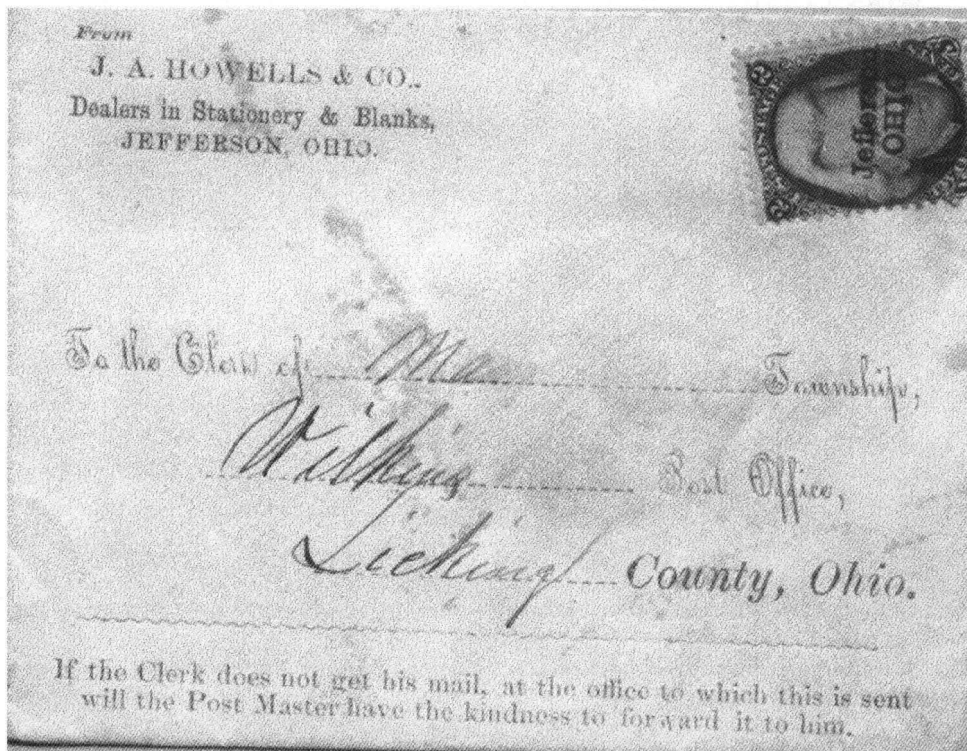 From
J. A. HOWELLS & CO.,
Dealers in Stationery & Blanks,
JEFFERSON, OHIO.
Jefferson
OHIO
To the Clerk of Township,
Post Office,
Licking County, Ohio.
If the Clerk does not get his mail, at the office to which this is sent
will the Post Master have the kindness to forward it to him.